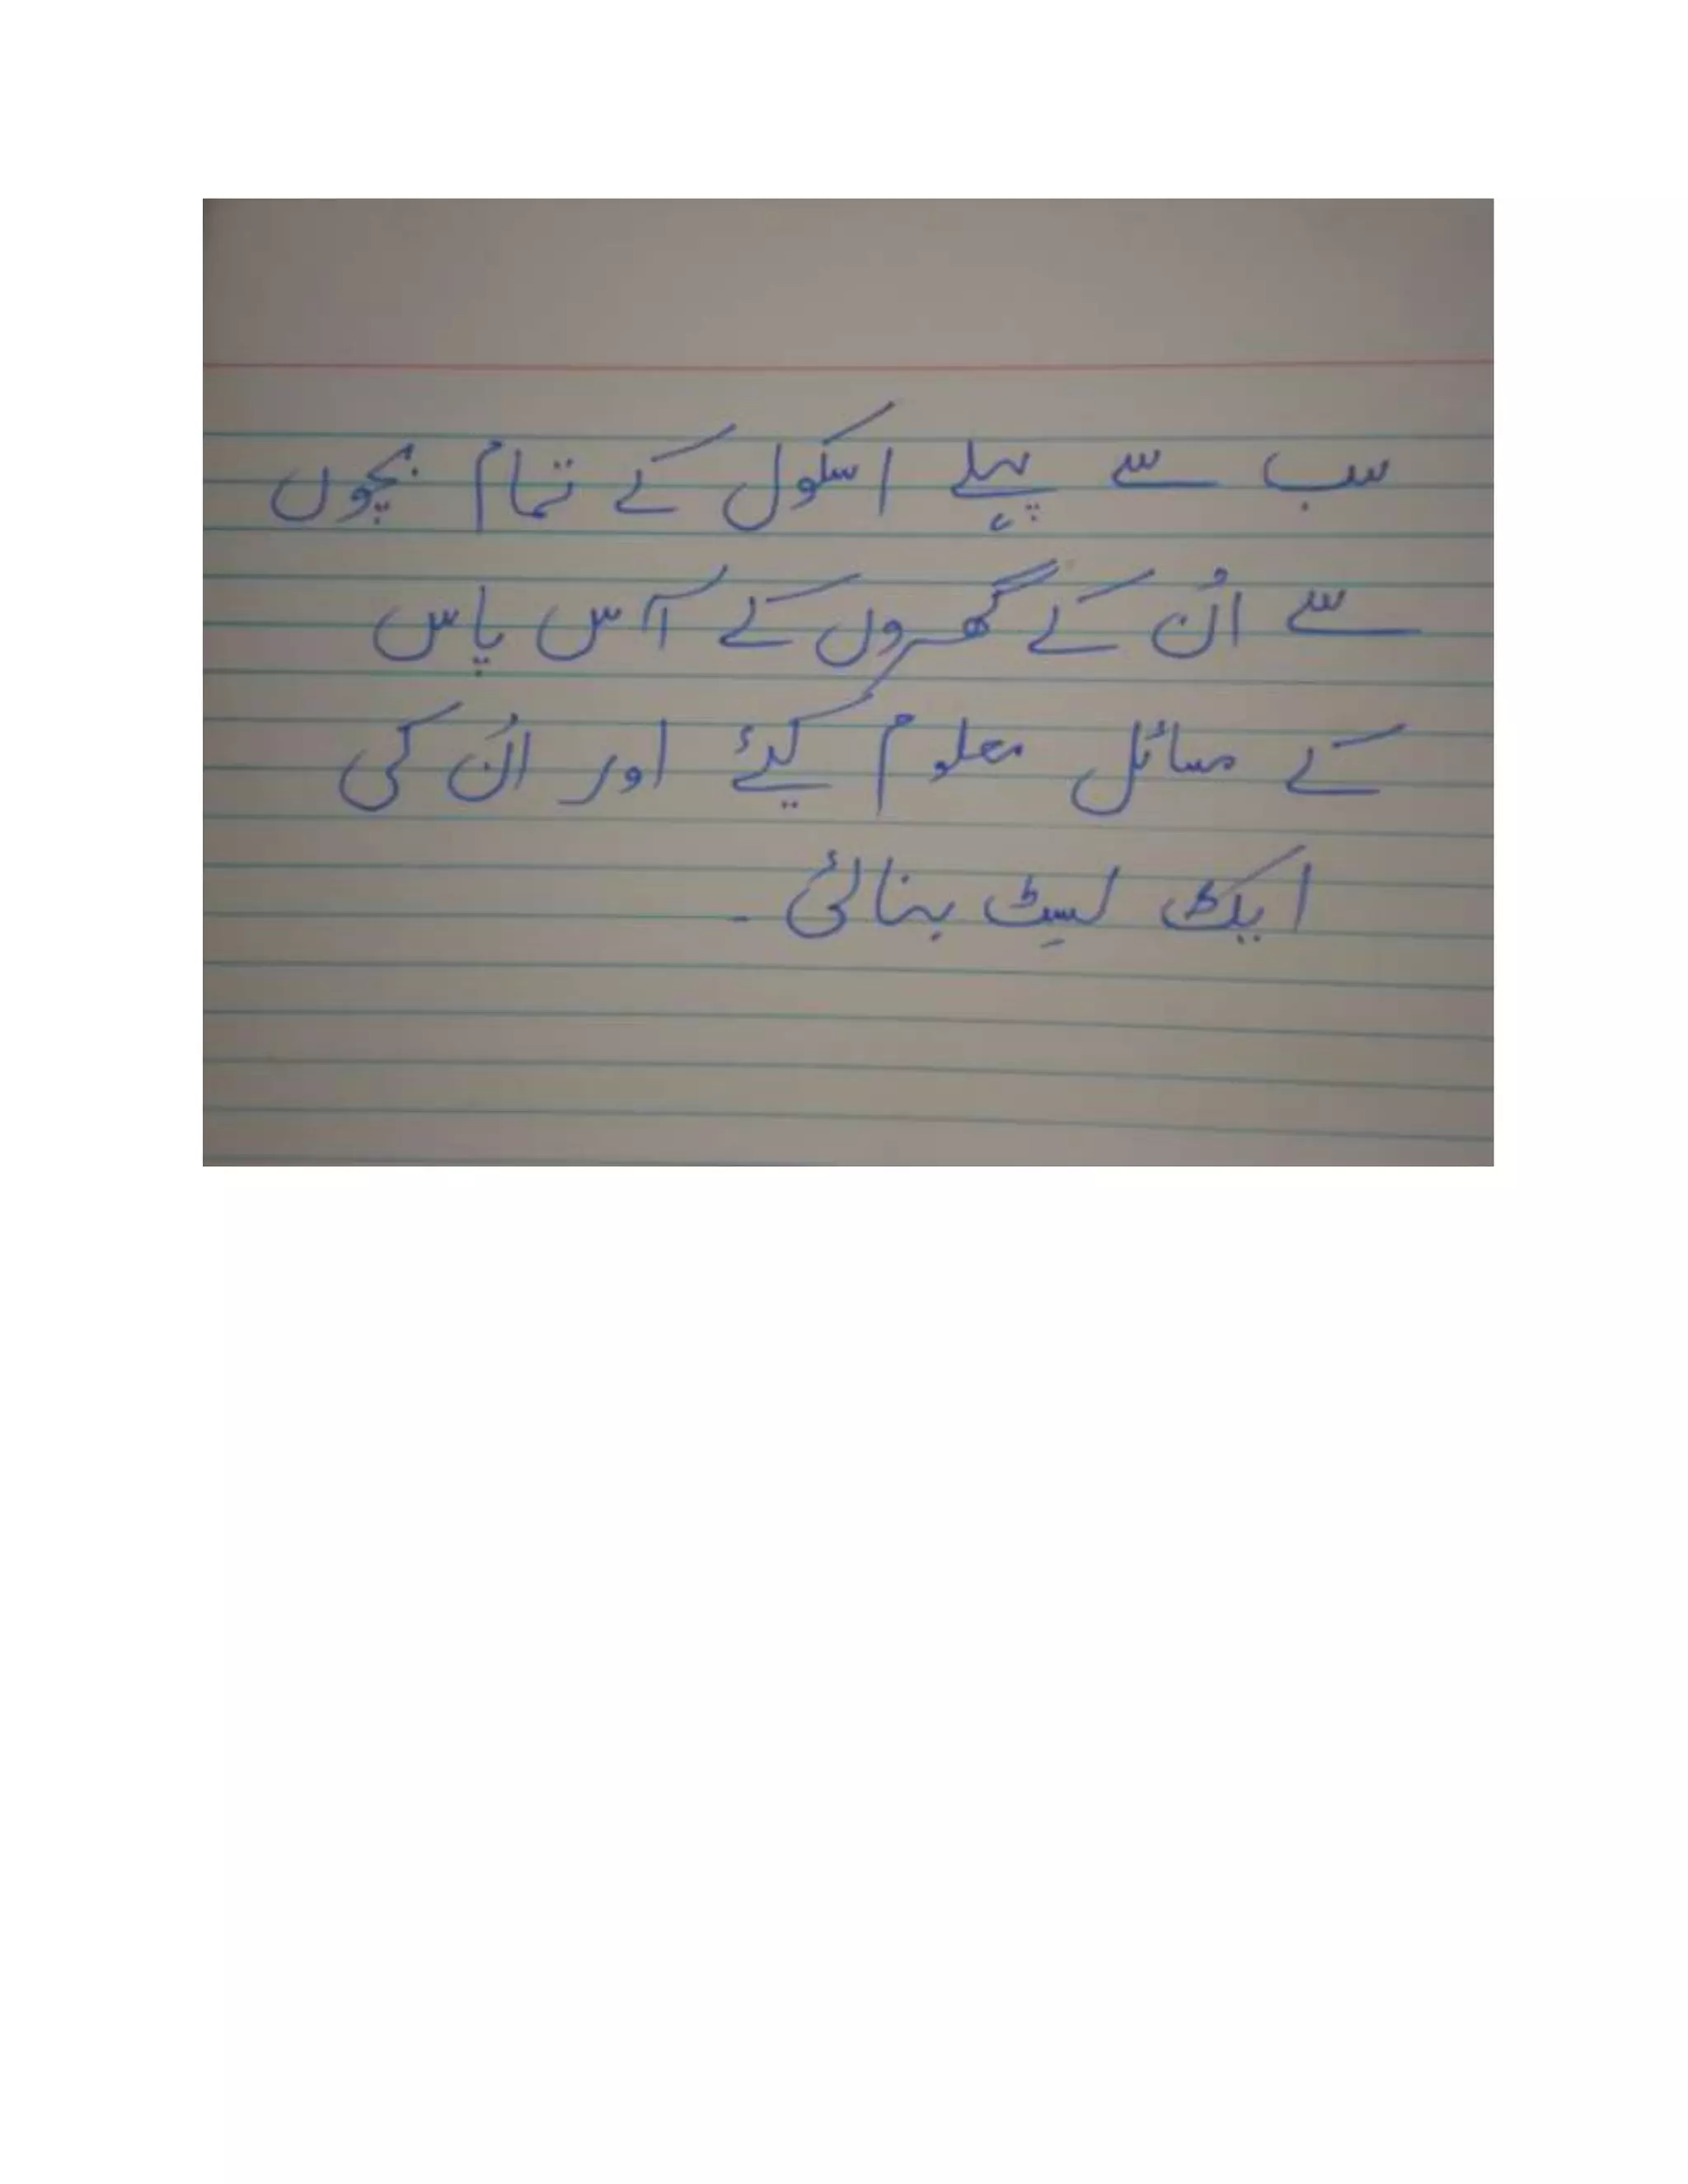 سب سے پہلے اسکول کے تمام بچوں
سے اُن کے گھروں کے آس پاس
کے مسائل معلوم کیئے اور اُن کی
ایک لسِٹ بنائی۔